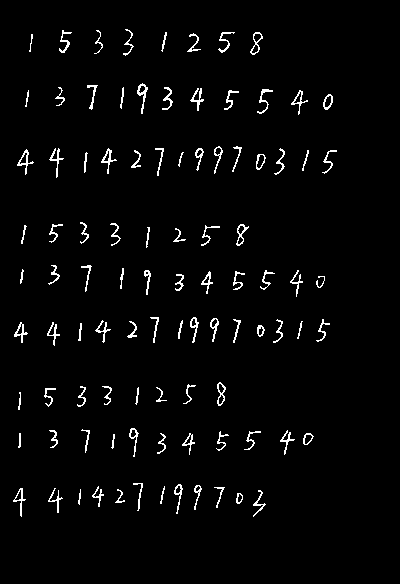 1 5 3 3 1 2 5 8
1 3 7 1 9 3 4 5 5 4 0
4 4 1 4 2 7 1 9 9 7 0 3 1 5
1 5 3 3 1 2 5 8
1 3 7 1 9 3 4 5 5 4 0
4 4 1 4 2 7 1 9 9 7 0 3 1 5
1 5 3 3 1 2 5 8
1 3 7 1 9 3 4 5 5 4 0
4 4 1 4 2 7 1 9 9 7 0 3